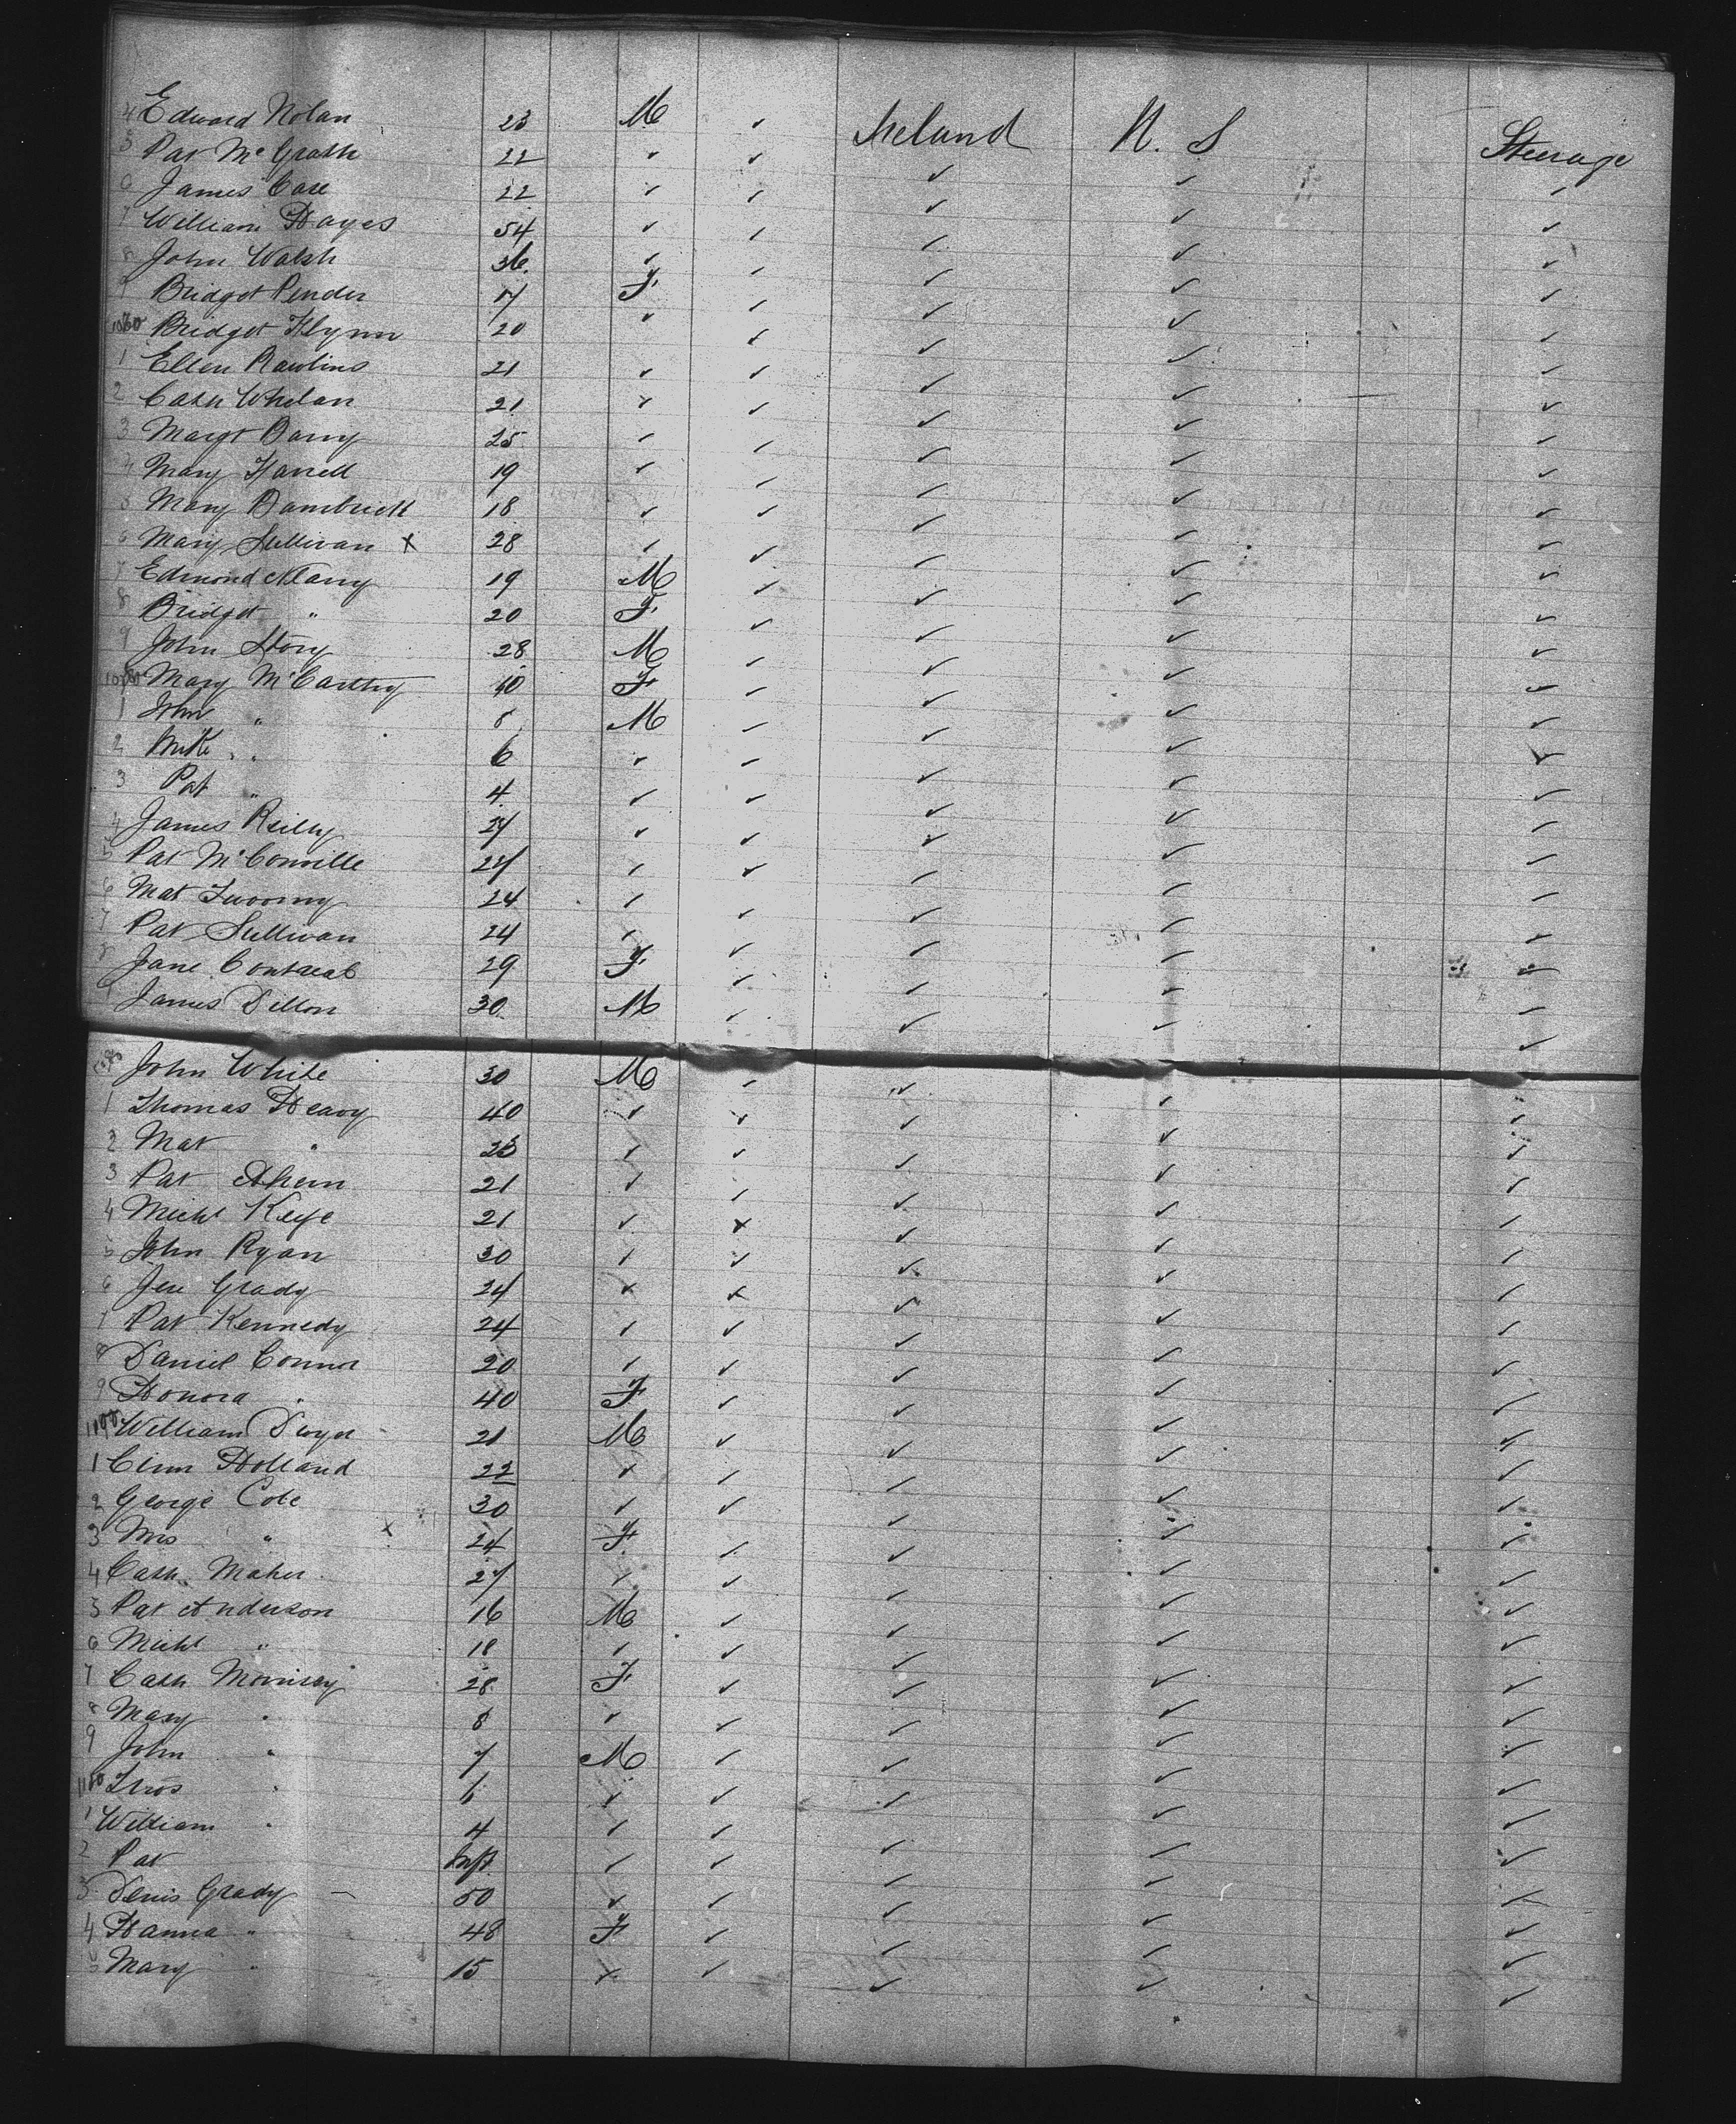 4 Edward Nolan 23 M ✓ Ireland U. S Steerage
5 Pat McGrath 22 ✓ ✓ ✓ ✓ ✓
6 James Case 22 ✓ ✓ ✓ ✓ ✓
7 William Hayes 54 ✓ ✓ ✓ ✓ ✓
8 John Walsh 36 ✓ ✓ ✓ ✓ ✓
9 Bridget Pender 17 F ✓ ✓ ✓ ✓
Bridget Flynn 20 ✓ ✓ ✓ ✓ ✓
1 Ellen Rawlins 21 ✓ ✓ ✓ ✓ ✓
2 Cath Whelan 21 ✓ ✓ ✓ ✓ ✓
3 Margt Barry 25 ✓ ✓ ✓ ✓ ✓
4 Mary Farrell 19 ✓ ✓ ✓ ✓ ✓
5 Mary Bambrick 18 ✓ ✓ ✓ ✓ ✓
6 Mary Sullivan x 28 ✓ ✓ ✓ ✓ ✓
7 Edmond 19 M ✓ ✓ ✓ ✓
8 Bridget " 20 F ✓ ✓ ✓ ✓
9 John Story 28 M ✓ ✓ ✓ ✓
Mary McCarthy 40 F ✓ ✓ ✓ ✓
1 John " 8 M ✓ ✓ ✓ ✓
2 Mike " 6 ✓ ✓ ✓ ✓ ✓
3 Pat " 4 ✓ ✓ ✓ ✓ ✓
4 James Reilly ✓ ✓ ✓ ✓ ✓
5 Pat McConville 24 ✓ ✓ ✓ ✓ ✓
6 Mat Twoomy 24 ✓ ✓ ✓ ✓ ✓
7 Pat Sullivan 24 ✓ ✓ ✓ ✓ ✓
8 Jane 29 F ✓ ✓ ✓ ✓
9 James Dillon 30 M ✓ ✓ ✓ ✓
John White 30 M ✓ ✓ ✓ ✓
1 Thomas Heavy 40 ✓ ✓ ✓ ✓ ✓
2 Mat " 23 ✓ ✓ ✓ ✓ ✓
3 Pat Ahern 21 ✓ ✓ ✓ ✓ ✓
4 Michl Keefe 21 ✓ ✓ ✓ ✓ ✓
5 John Ryan 30 ✓ ✓ ✓ ✓ ✓
6 Jere Grady 24 ✓ ✓ ✓ ✓ ✓
7 Pat Kennedy 24 ✓ ✓ ✓ ✓ ✓
8 Daniel Connor 20 ✓ ✓ ✓ ✓ ✓
9 Honora " 40 F ✓ ✓ ✓ ✓
William Dwyer 21 M ✓ ✓ ✓ ✓
1 Holland 22 ✓ ✓ ✓ ✓ ✓
2 George Cole 30 ✓ ✓ ✓ ✓ ✓
3 Mrs " x 24 F ✓ ✓ ✓ ✓
4 Cath. Maher 27 ✓ ✓ ✓ ✓ ✓
5 Pat Anderson 16 M ✓ ✓ ✓ ✓
6 Michl " 18 ✓ ✓ ✓ ✓ ✓
7 Cath Morrisey 28 F ✓ ✓ ✓ ✓
8 Mary " 8 ✓ ✓ ✓ ✓ ✓
9 John " 7 M ✓ ✓ ✓ ✓
Thos " 6 ✓ ✓ ✓ ✓ ✓
1 William " 4 ✓ ✓ ✓ ✓ ✓
2 Pat Inft ✓ ✓ ✓ ✓ ✓
3 Denis Grady 50 ✓ ✓ ✓ ✓ ✓
4 Hanna " 48 F ✓ ✓ ✓ ✓
5 Mary " 15 ✓ ✓ ✓ ✓ ✓